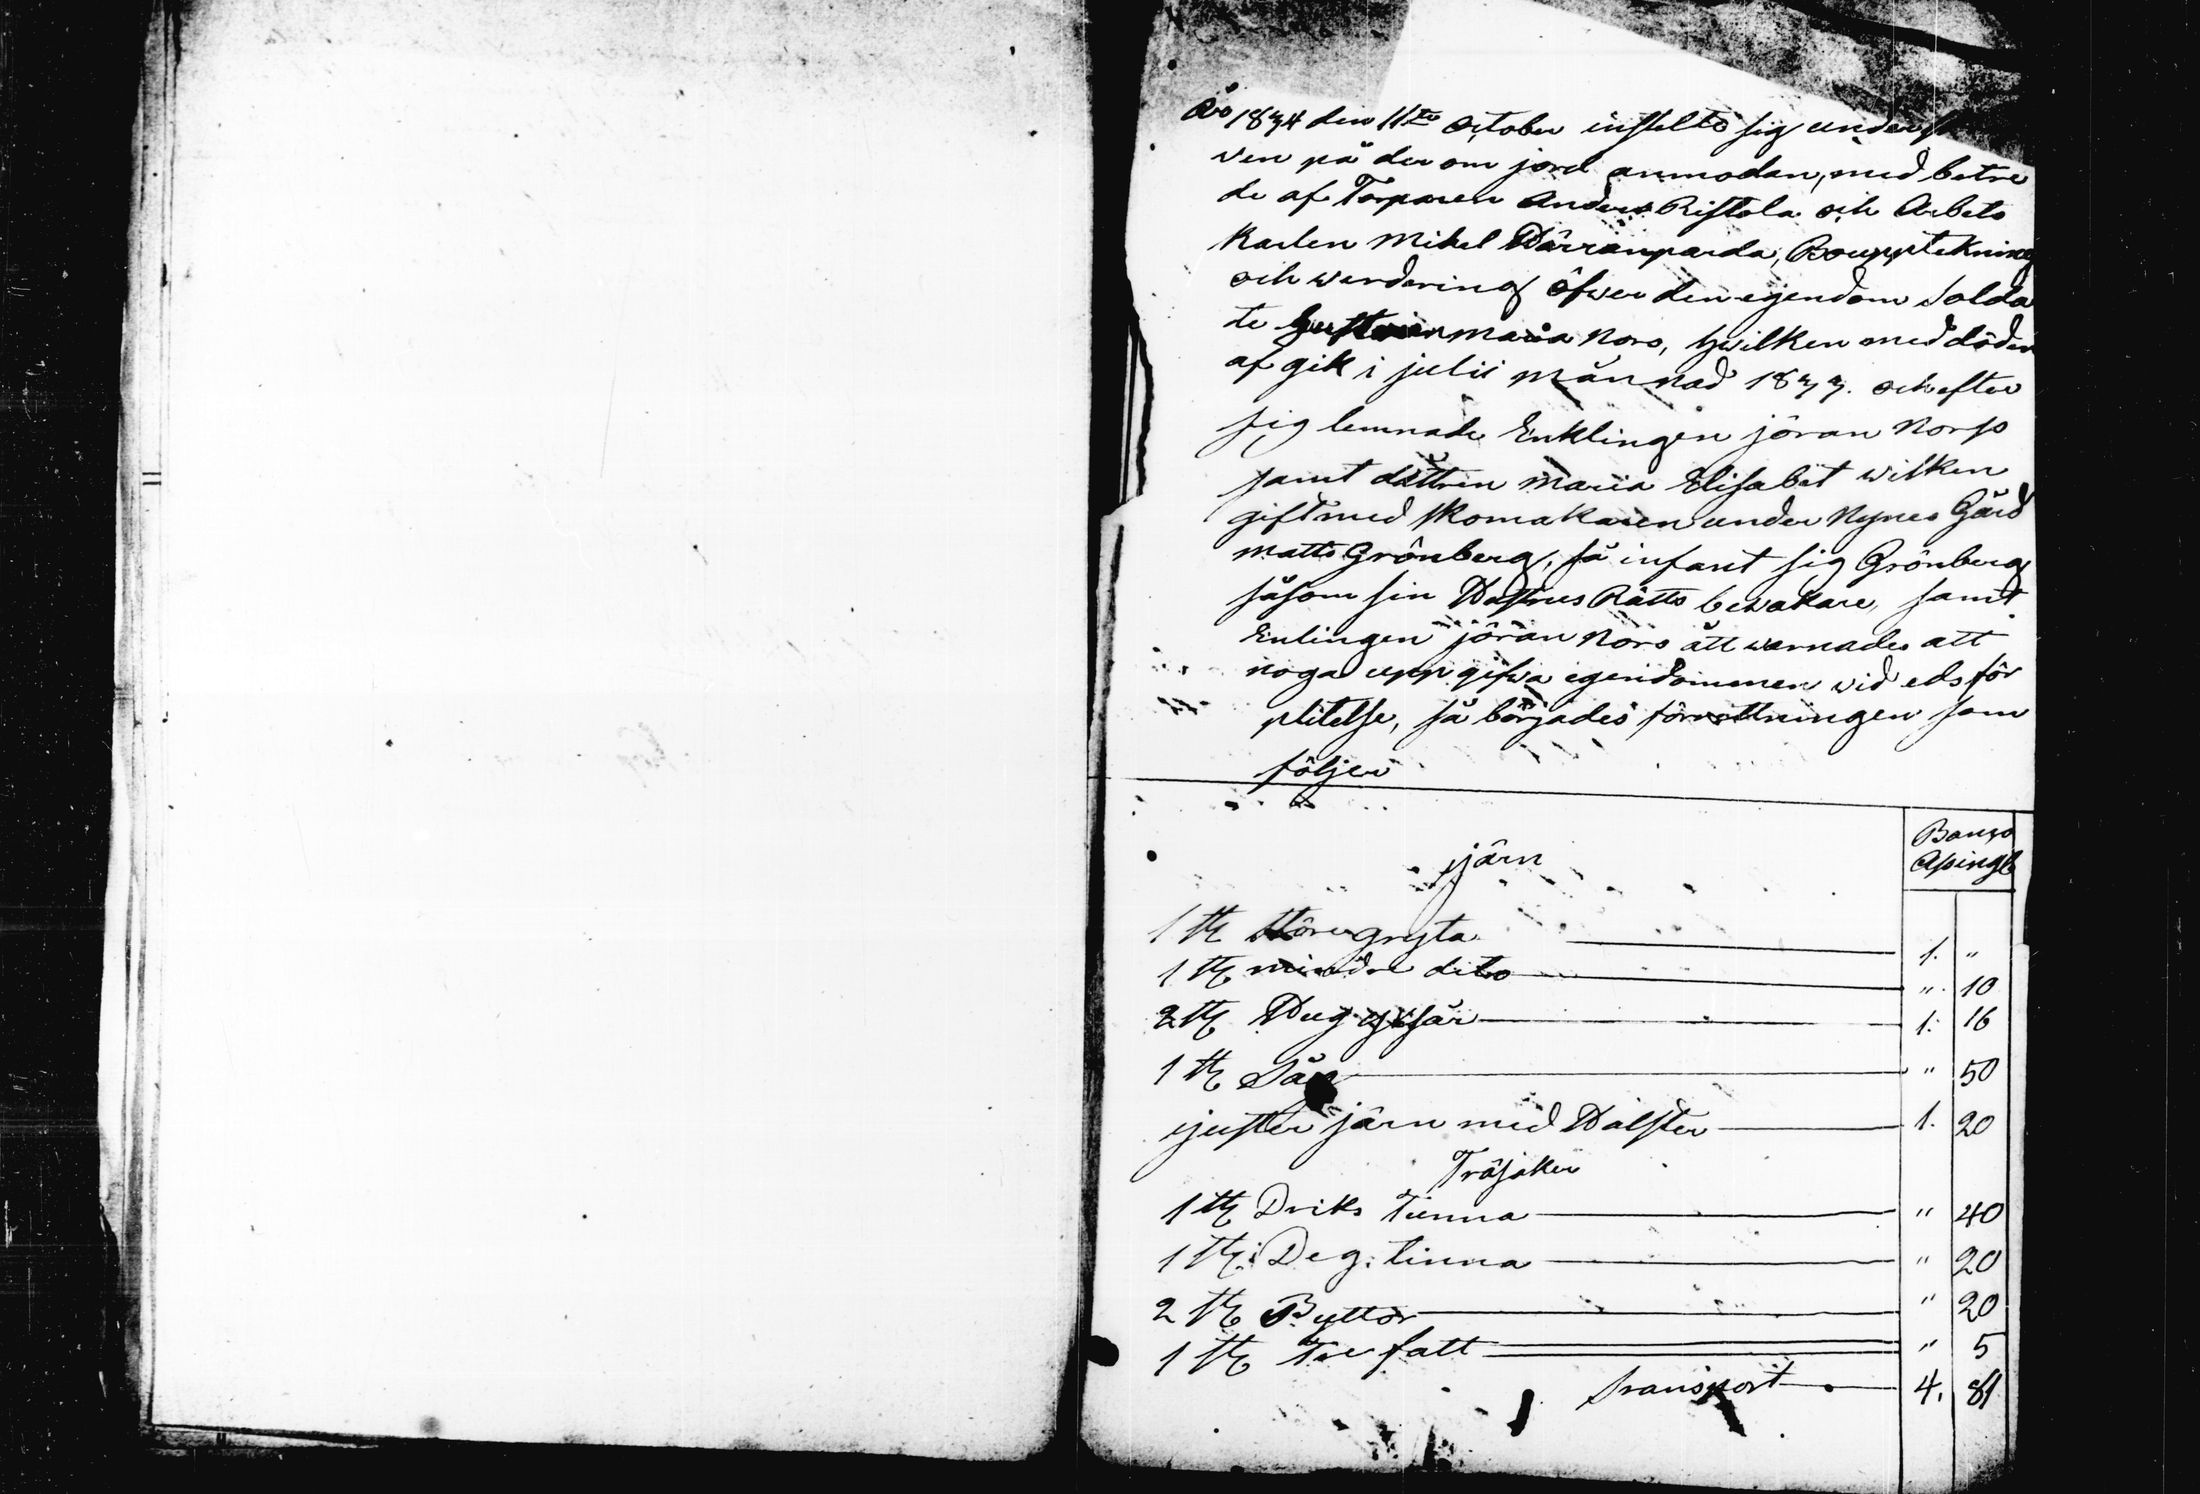 År 1834 den 11te October instelte sig undersk
ven på der om jord anmodan, med betre
de af Torparen Anders Ristola och Arbets
Karlen Mikel Pärranparda, Boupptekning
och werdering öfwer den egendom Solda
te Hustrun Maria Nors, hwilken med döden
af gik i julii månnad 1833. och efter
sig lemnade Enklingen jöran Norss
samt dottren Maria Elisabet wilken
gift med Skomakaren under Nynes Gård
matts Grönberg, så infant sig Grönberg
såsom sin Hustrus Rätts bewakare, samt
Enlingen jöran Nors åtwarnades att
noga uppgifwa egendommen vid eds för
plitelse, så börjades förrettningen som
följer
Banco
Assingt
järn
1 st Störe gryta 1. "
1 st mindre dito " 10
2 st 1. 16
1 st Såg " 50
järn med 1. 20
Träsaker
1 st Driks Tunna " 40
1 st Deg tinna " 20
2 st Byttor " 20
1 st Tre fatt " 5
Transport 4. 81